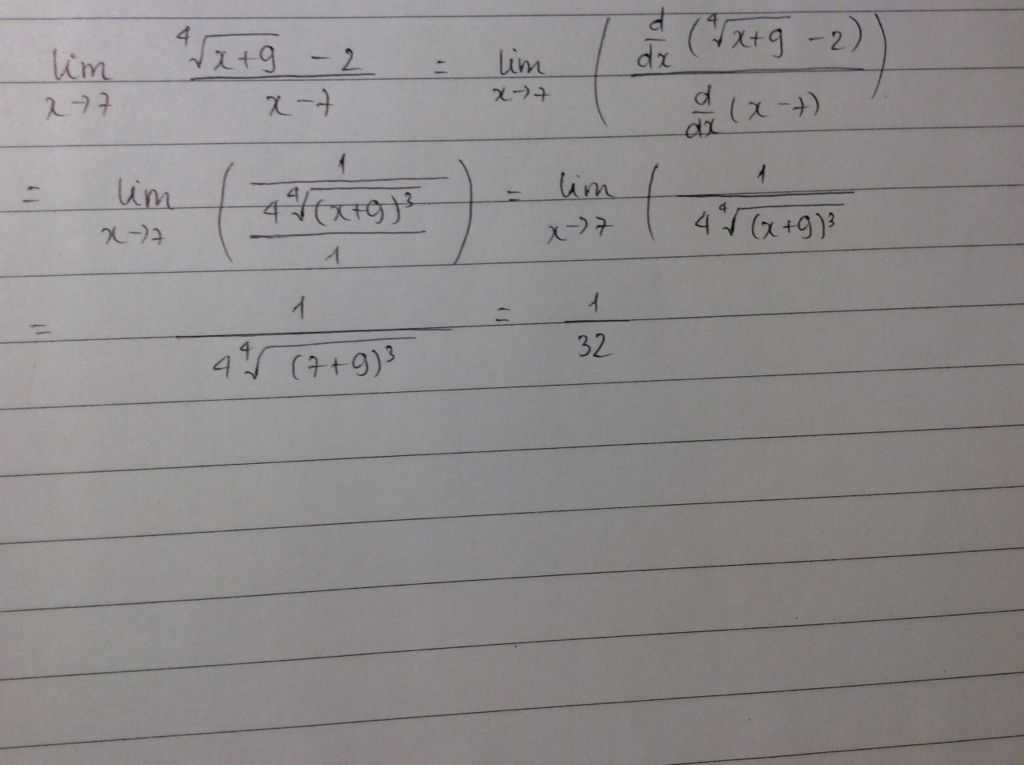 lim x→7 (∜(x+9) - 2)/(x-7) = lim x→7 ( (d/dx (∜(x+9) - 2))/(d/dx (x-7)) )
= lim x→7 ( (1/(4∜((x+9)³)))/1 ) = lim x→7 ( 1/(4∜((x+9)³))
= 1/(4∜((7+9)³)) = 1/32